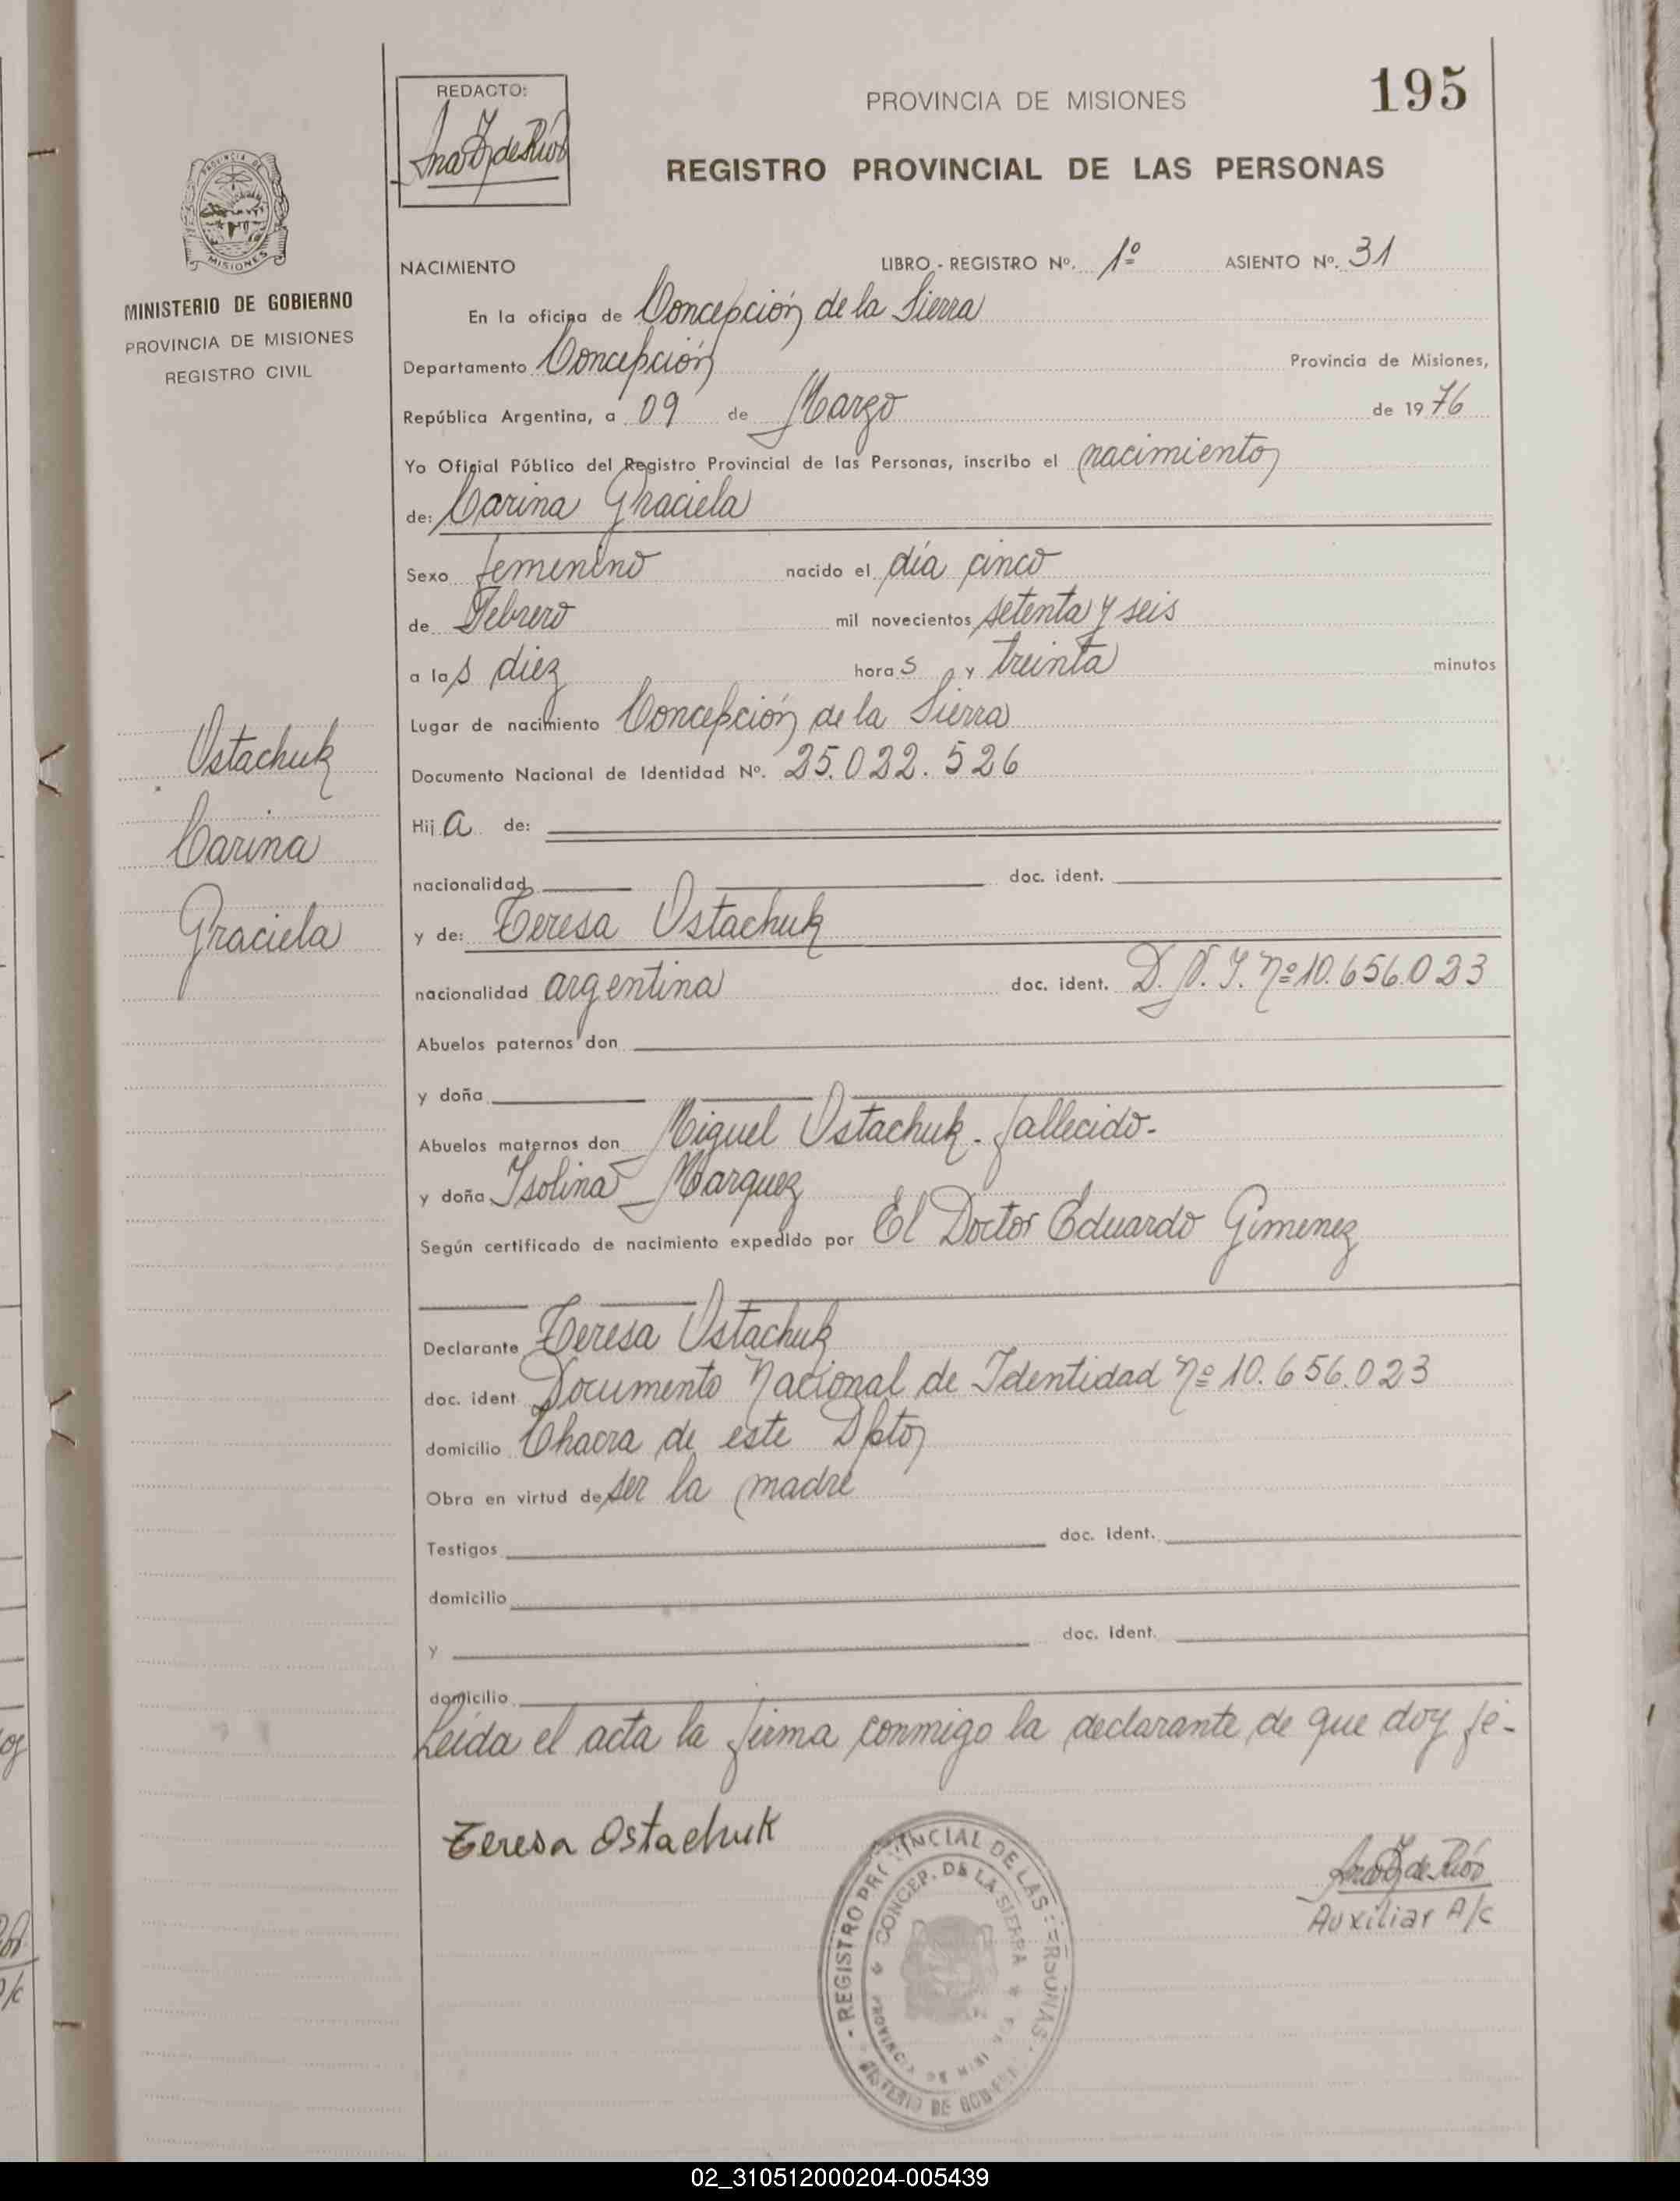 195
REDACTO:
PROVINCIA DE MISIONES
REGISTRO PROVINCIAL DE LAS PERSONAS
PROVINCIA DE MISIONES
MINISTERIO DE GOBIERNO
PROVINCIA DE MISIONES
REGISTRO CIVIL
Ostachuk
Carina
Graciela
NACIMIENTO LIBRO - REGISTRO Nº. 1º ASIENTO Nº. 31
En la oficina de Concepción de la Sierra
Departamento Concepción Provincia de Misiones,
República Argentina, a 09 de Marzo de 1976
Yo Oficial Público del Registro Provincial de las Personas, inscribo el nacimiento
de: Carina Graciela
Sexo femenino nacido el día cinco
de Febrero mil novecientos setenta y seis
a las diez horas y treinta minutos
Lugar de nacimiento Concepción de la Sierra
Documento Nacional de Identidad Nº. 25.022.526
Hija de:
nacionalidad doc. ident.
y de: Teresa Ostachuk
nacionalidad argentina doc. ident. D.N.I. nº 10.656.023
Abuelos paternos don
y doña
Abuelos maternos don Miguel Ostachuk. fallecido-
y doña Isolina Marquez
Según certificado de nacimiento expedido por El Doctor Eduardo Gimenez
Declarante Teresa Ostachuk
doc. ident Documento Nacional de Identidad nº 10.656.023
domicilio Chacra de este Dpto
Obra en virtud de ser la madre
Testigos doc. ident.
domicilio
y doc. ident.
domicilio
Leída el acta la firma conmigo la declarante de que doy fe-
Teresa Ostachuk
Auxiliar A/c
REGISTRO PROVINCIAL DE LAS PERSONAS
CONCEP. DE LA SIERRA
02_310512000204-005439